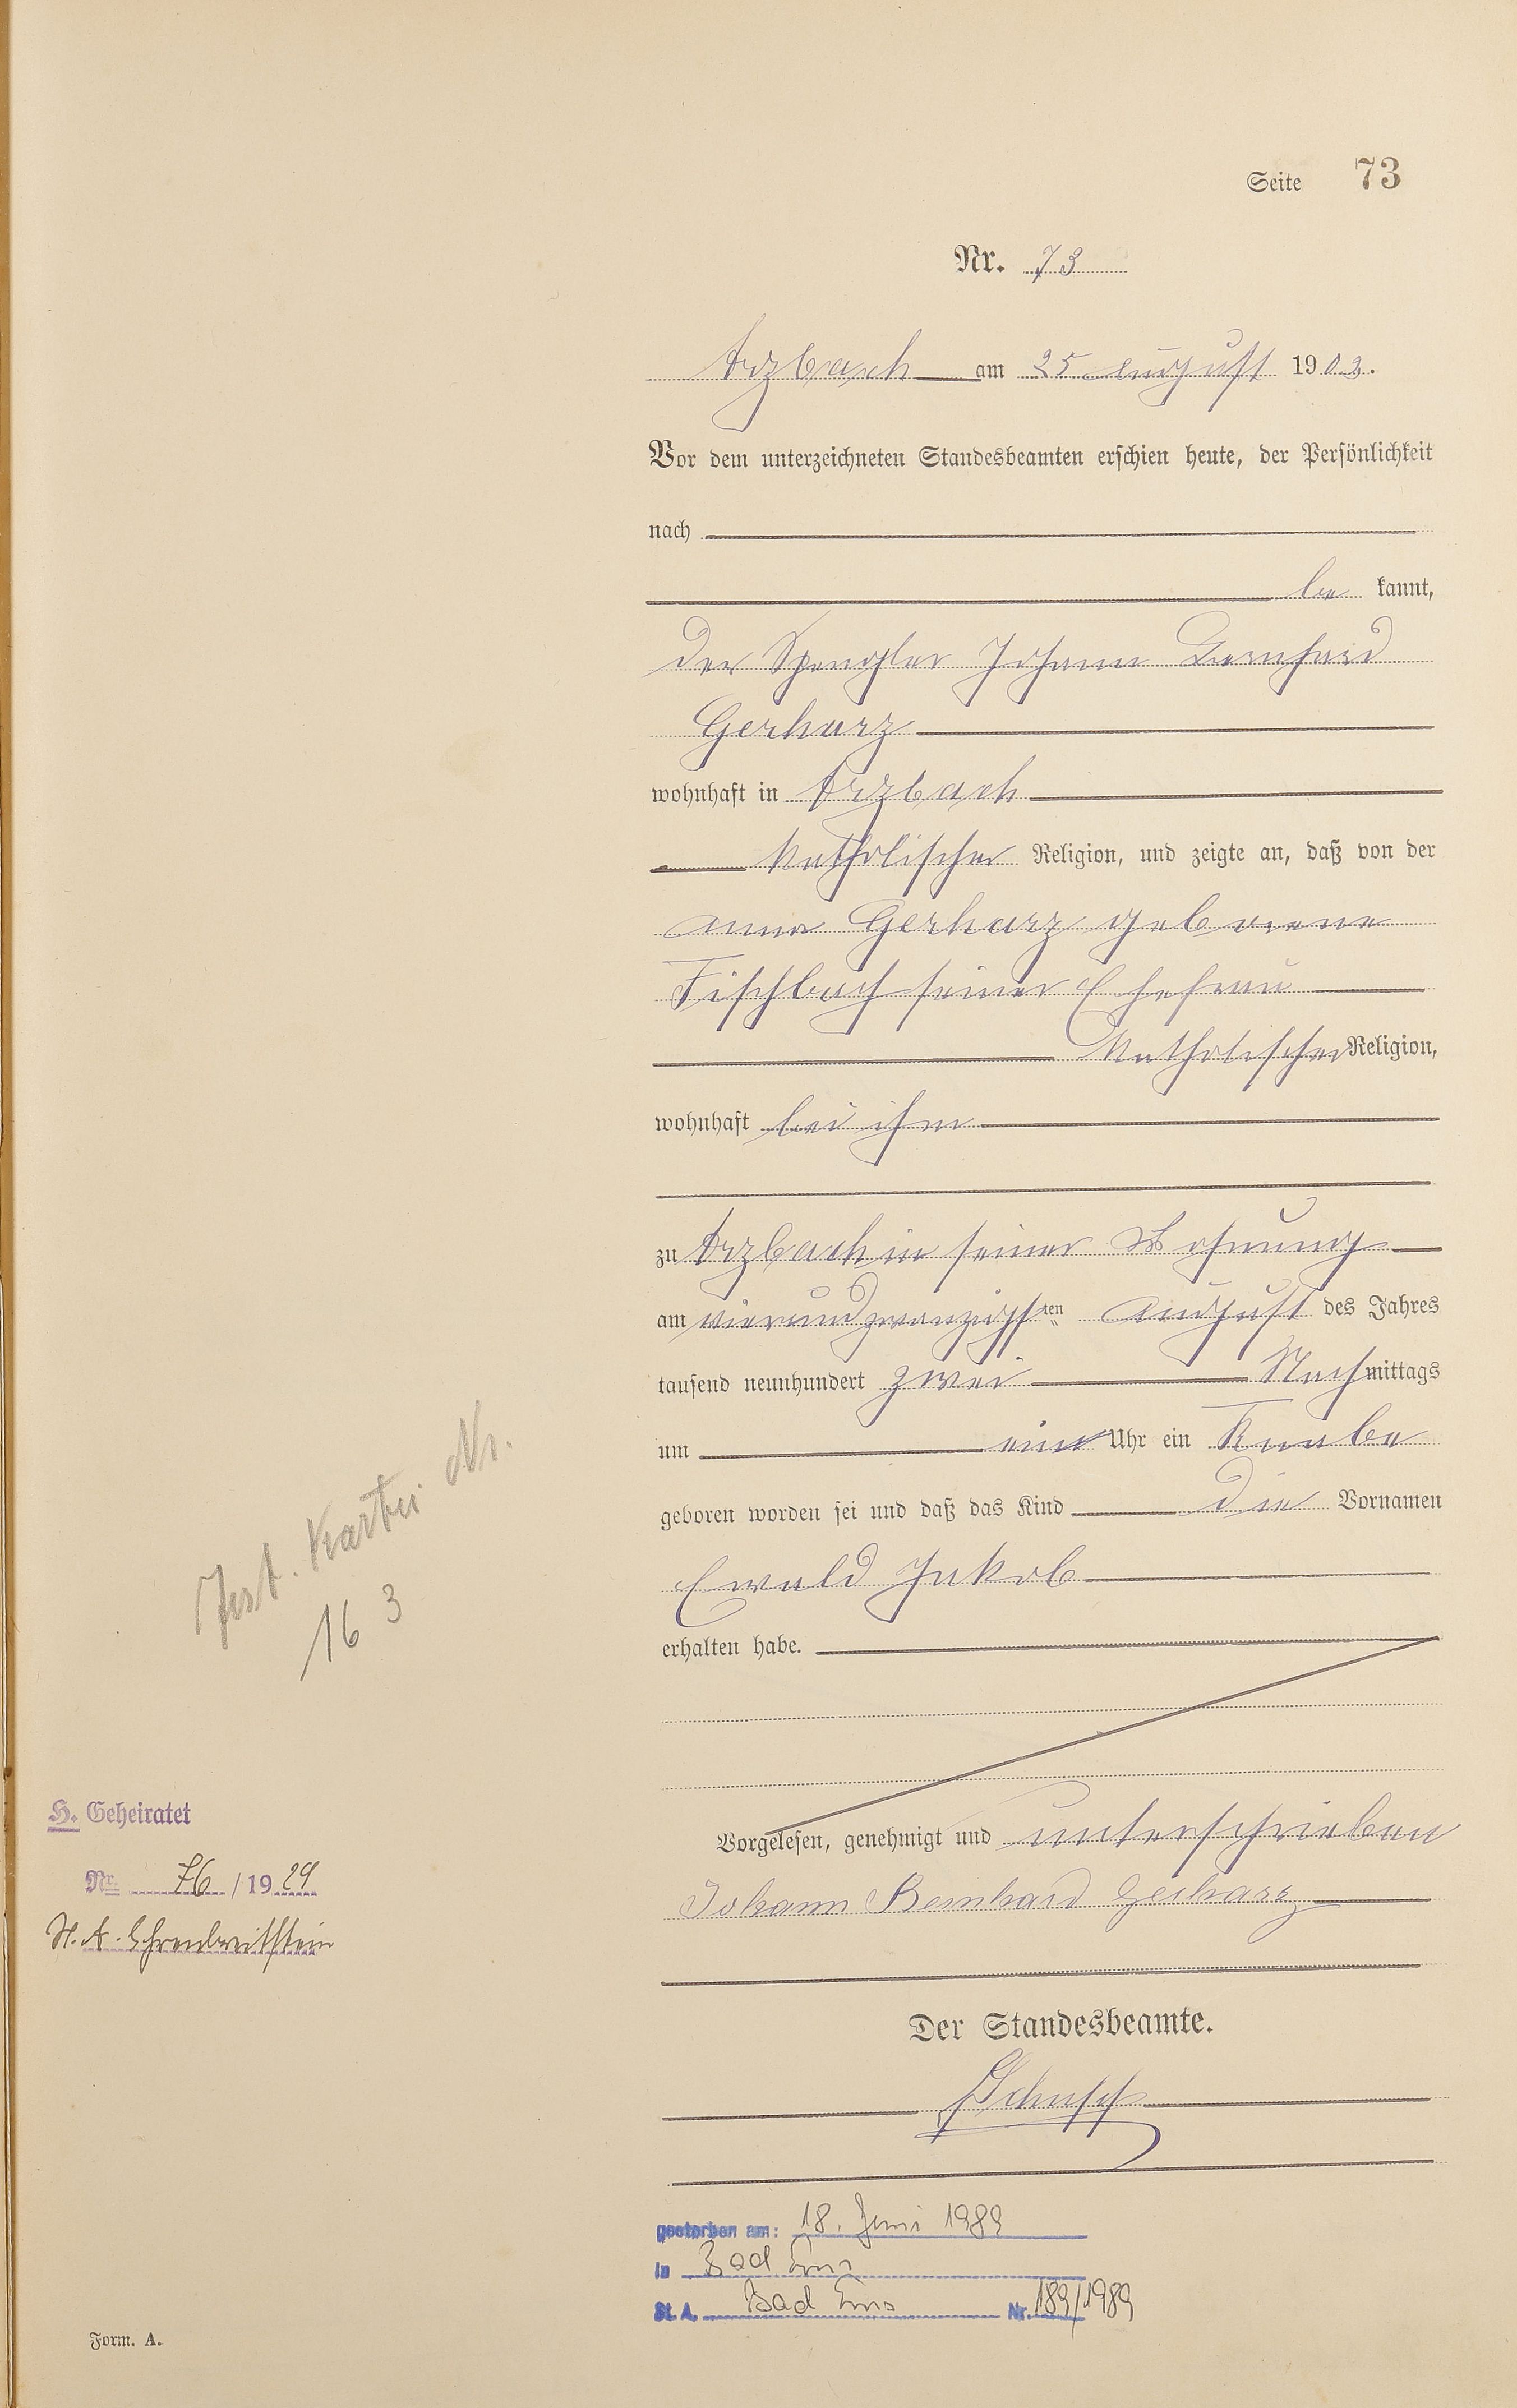 Seite 73
Nr. 73
Arzbach am 25 August 1902.
Vor dem unterzeichneten Standesbeamten erschien heute, der Persönlichkeit
nach
be kannt,
der Spengler Johann Bernhard
Gerharz
wohnhaft in Arzbach
katholischer Religion, und zeigte an, daß von der
Anna Gerharz geborene
Fischbach seiner Ehefrau
katholischer Religion,
wohnhaft bei ihm
zu Arzbach in seiner Wohnung
am vierundzwanzigsten August des Jahres
tausend neunhundert zwei Nachmittags
um ein Uhr ein Knabe
geboren worden sei und daß das Kind die Vornamen
Ewald Jakob
erhalten habe.
Vorgelesen, genehmigt und unterschrieben
Johann Bernhard Gerharz
Der Standesbeamte.
gestorben am: 18. Juni 1989
in Bad Ems
St. A. Bad Ems Nr. 189/1989
Kartei Nr.
16 3
H. Geheiratet
Nr. 76 / 1929
St. A. Ehrenbreitstein
Form. A.